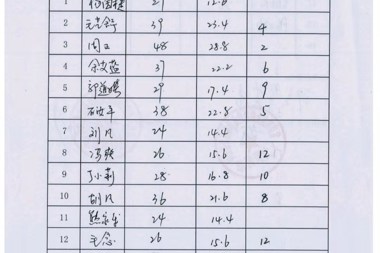 1 12.6
2 39 23.4 4
3 周 48 28.8 2
4 37 22.2 6
5 29 17.4 9
6 38 22.8 5
7 刘凡 24 14.4
8 冯爽 26 15.6 12
9 丁小莉 28 16.8 10
10 胡凡 36 21.6 8
11 熊 24 14.4
12 毛念 26 15.6 12